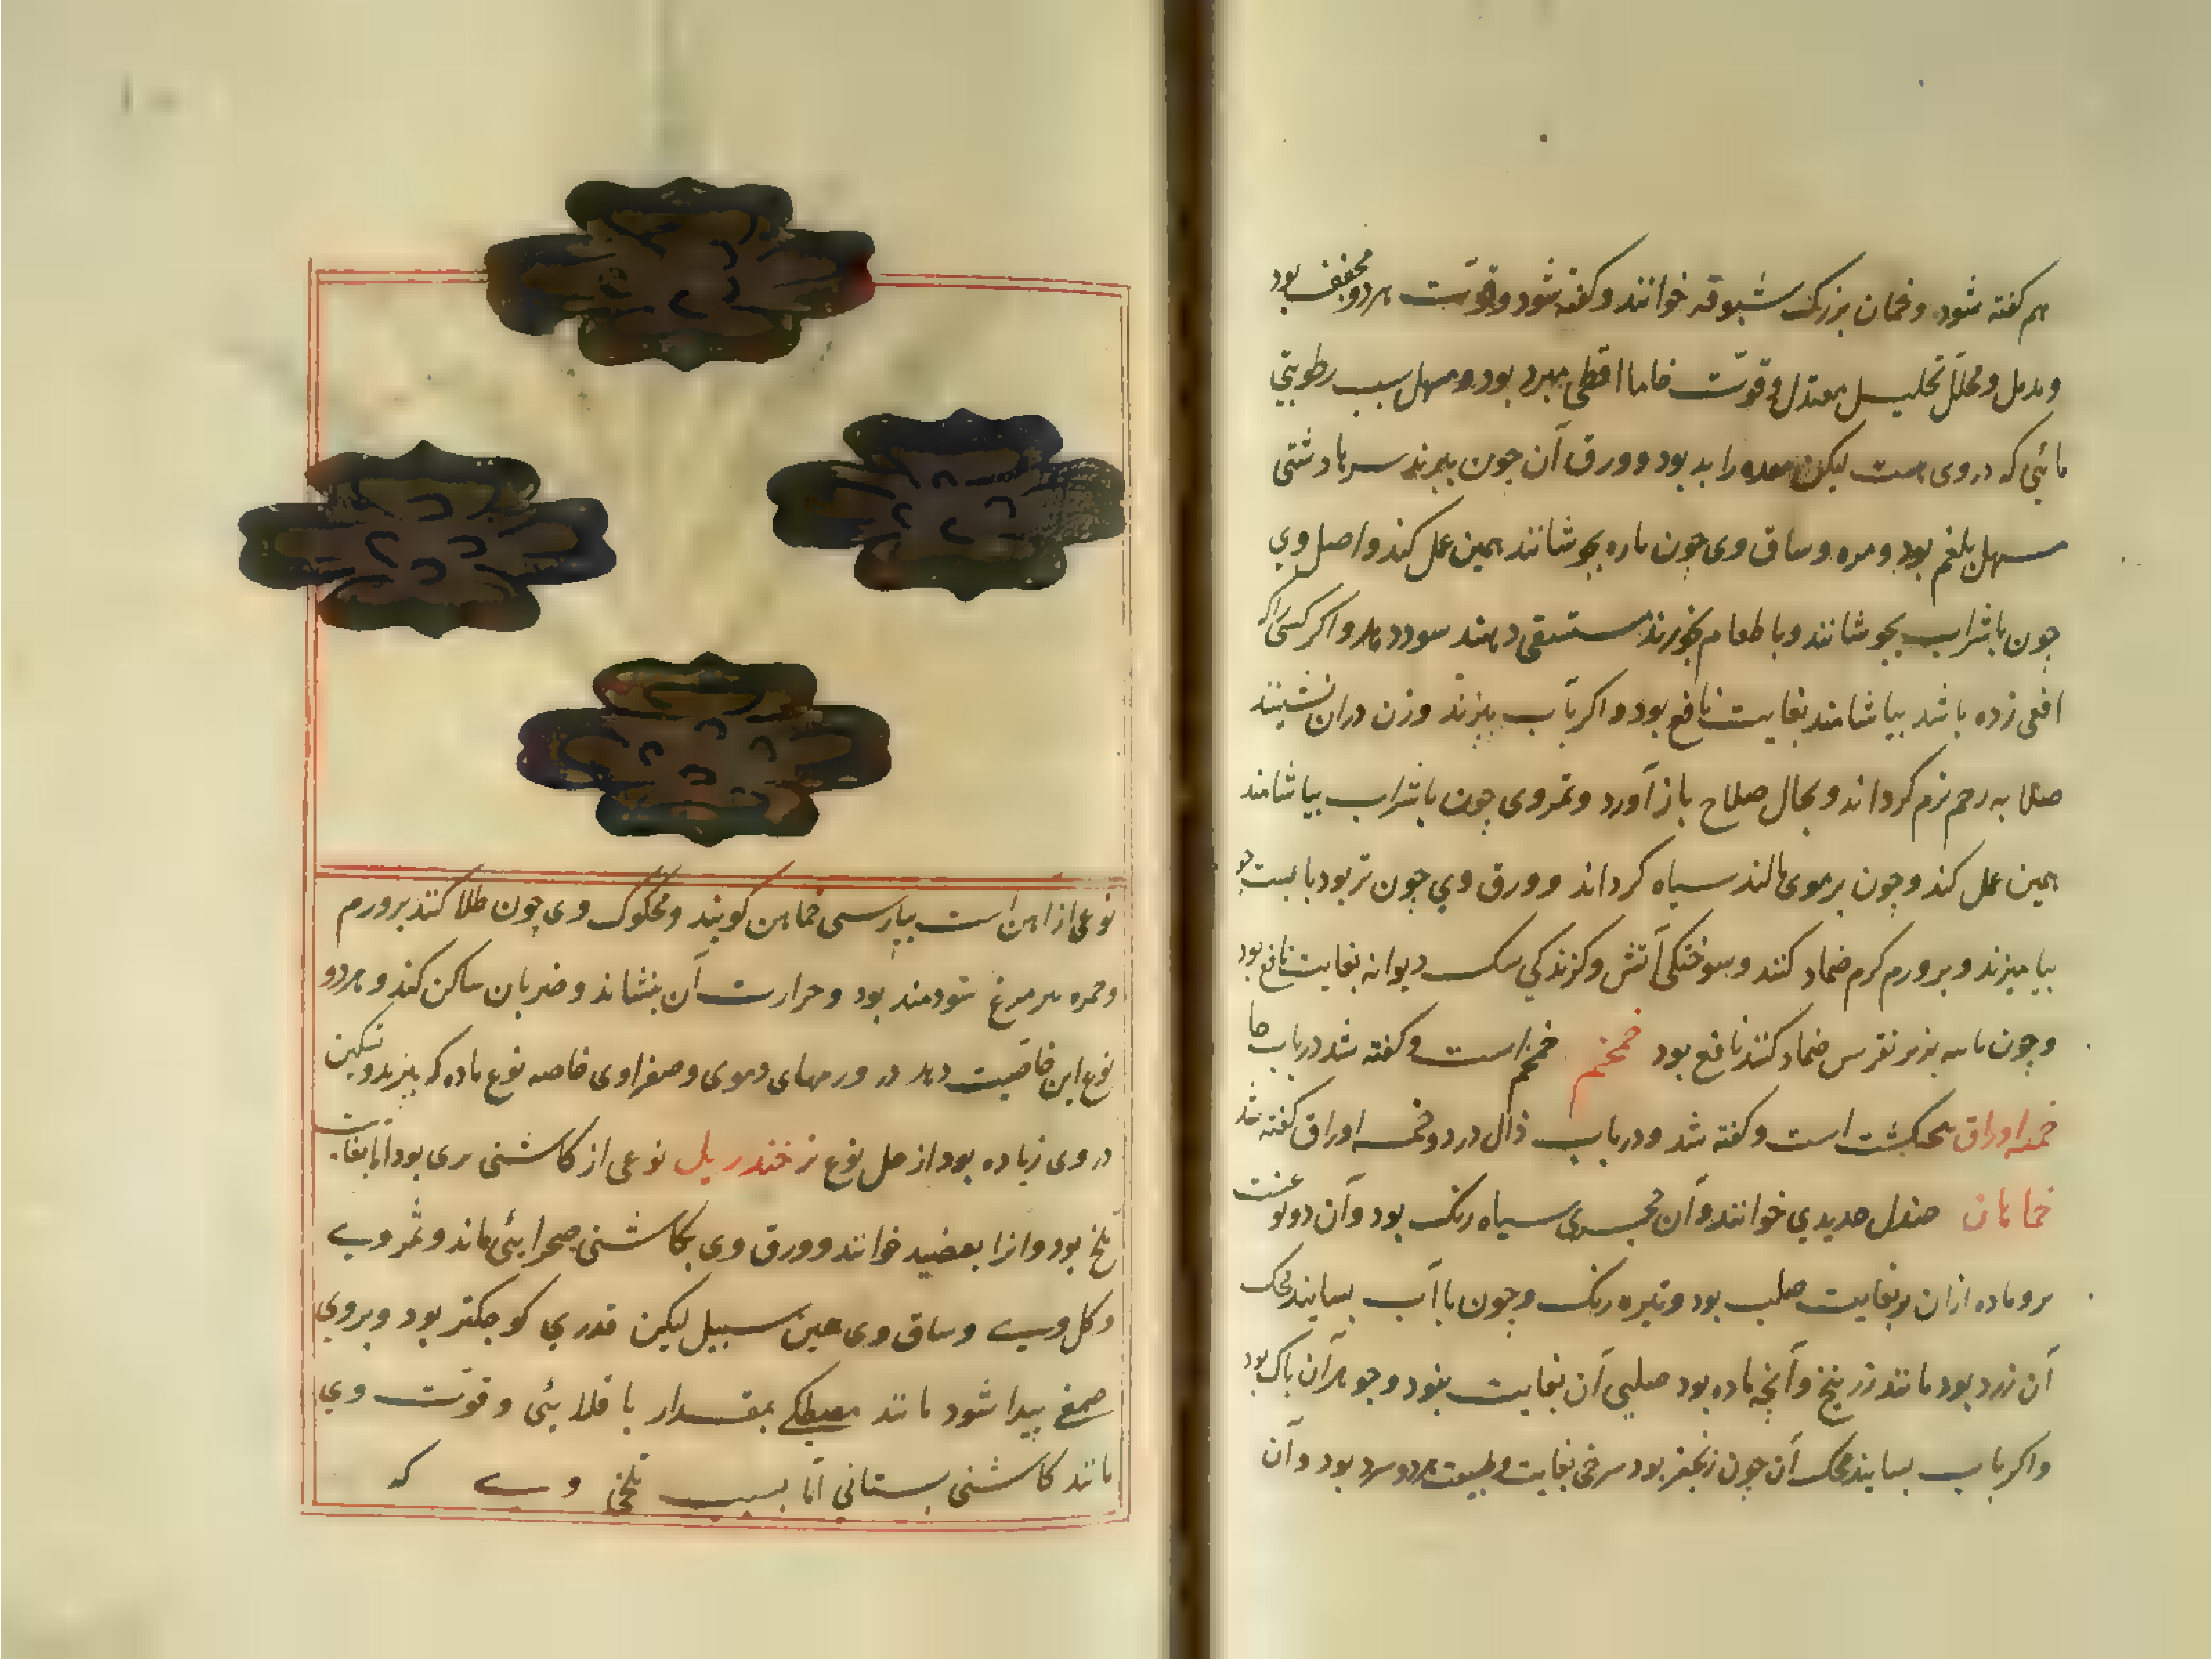 هم کفته شود و خمان بزرک شبوقه خوانند و کفته شود و قوت هر دو مجفف بود
و مدمل و محلل تحلیل معتدل و قوت خاما اقطی مبرد بود و مسهل سبب رطوبتی
مائی که در وی هست لیکن معده را بد بود و ورق آن چون بپزند سرماد شتی
مسهل بلغم بود و مره و ساق وی چون ماره بجوشانند همین عمل کند و اصل وی
چون باشراب بجوشانند و با طعام بخورند مستسقی دهند سود دهد و اکر کسی را که
افعی زده باشد بیاشامند بغایت نافع بود و اکر بآب بپزند و زن دران نشینند
صلابه رحم نرم کرداند و بحال صلاح باز آورد و ثمر وی چون باشراب بیاشامند
همین عمل کند و چون بر موی مالند سیاه کرداند و ورق وی چون تر بود با پست جو
بیامیزند و بر ورم کرم ضماد کنند و سوختکی آتش و کزندکی سک دیوانه بغایت نافع بود
و چون با پیه بز بر نقرس ضماد کنند نافع بود خمخم خمخم است و کفته شد در باب حا
خمسه اوراق بنجنکشت است و کفته شد و در باب ذال در ذو خمسه اوراق کفته شد
خماهان صندل حدیدی خوانند و آن حجری سیاه رنک بود و آن دو نوعست
نر و ماده از آن نر بغایت صلب بود و تیره رنک و چون با آب بسایند محک
آن زرد بود مانند زرنیخ و آنچه ماده بود صلبی آن بغایت نبود و جوهر آن پاک بود
و اکر بآب بسایند محک آن چون زنجفر بود سرخی بغایت و طبیعت هر دو سرد بود و آن
نوعی از اهن است بپارسی خماهن کویند و محکوک وی چون طلا کنند بر ورم
و حمره هر مرغ سودمند بود و حرارت آن بنشاند و ضربان ساکن کند و هر دو
نوع این خاصیت دهد در ورمهای دموی و صفراوی خاصه نوع ماده که تبرید و تسکین
در وی زیاده بود از صل نوع نر خندریل نوعی از کاشنی بری بود اما بغایت
تلخ بود و انرا بعضید خوانند و ورق وی بکاشنی صحرایئی ماند و ثمر وی
و کل وی و ساق وی همین سبیل لیکن قدری کوچکتر بود و بروی
صمغ پیدا شود مانند مصطکی بمقدار باقلایئی و قوت وی
مانند کاشنی بستانی اما بسبب تلخی وی که